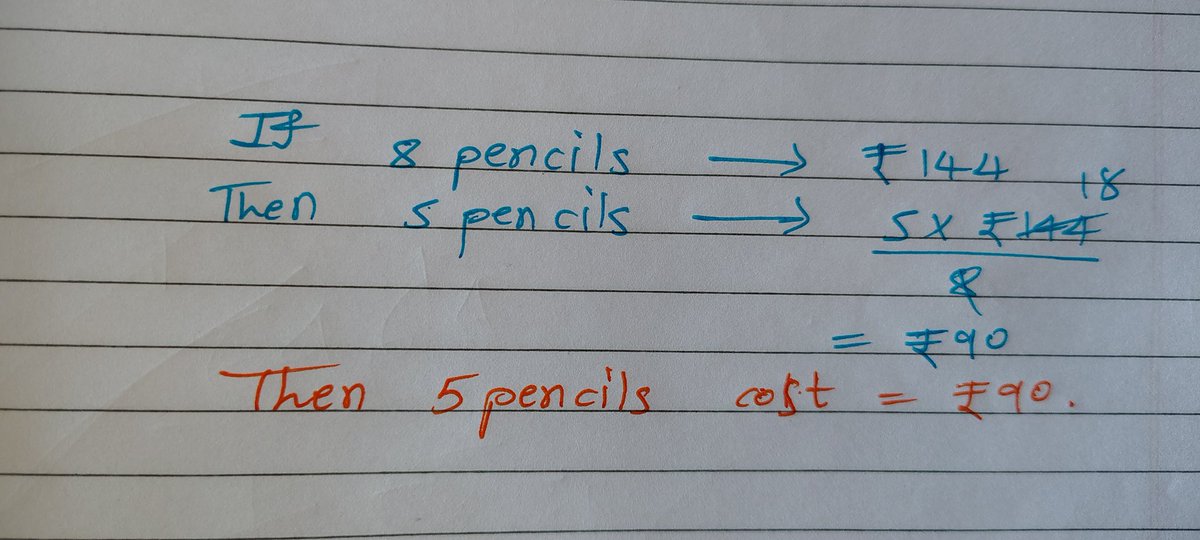 If 8 pencils → ₹144
Then 5 pencils → 5 x ₹144 18
8
= ₹90
Then 5 pencils cost = ₹90.